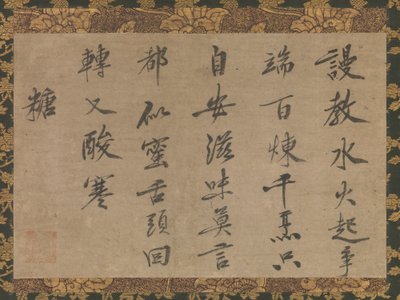 謾教水火起爭
端百煉千只
自安滋味莫言
都似蜜舌頭回
轉又酸寒
糖